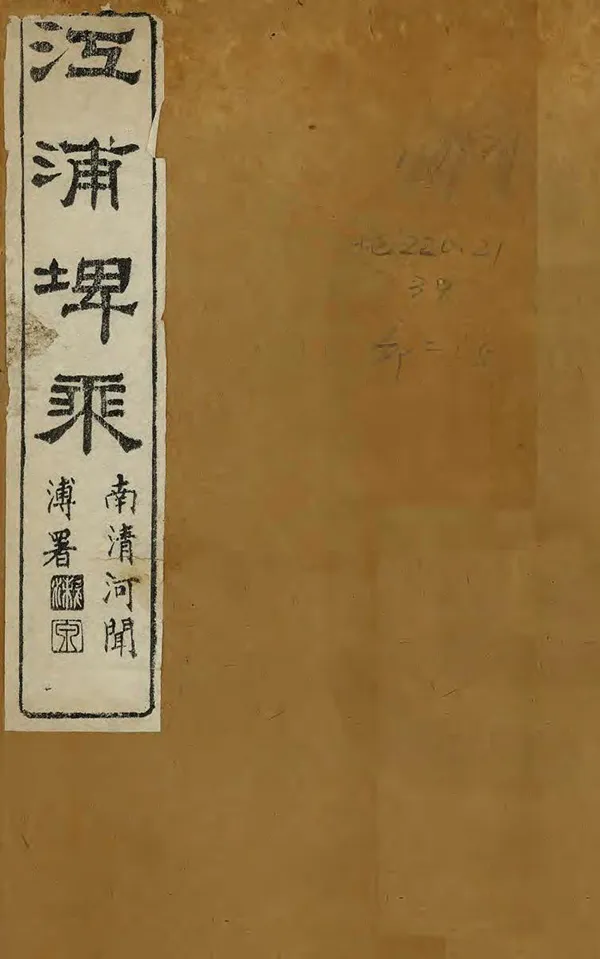 江浦埤乘
南清河聞
溥署
地220.21
39